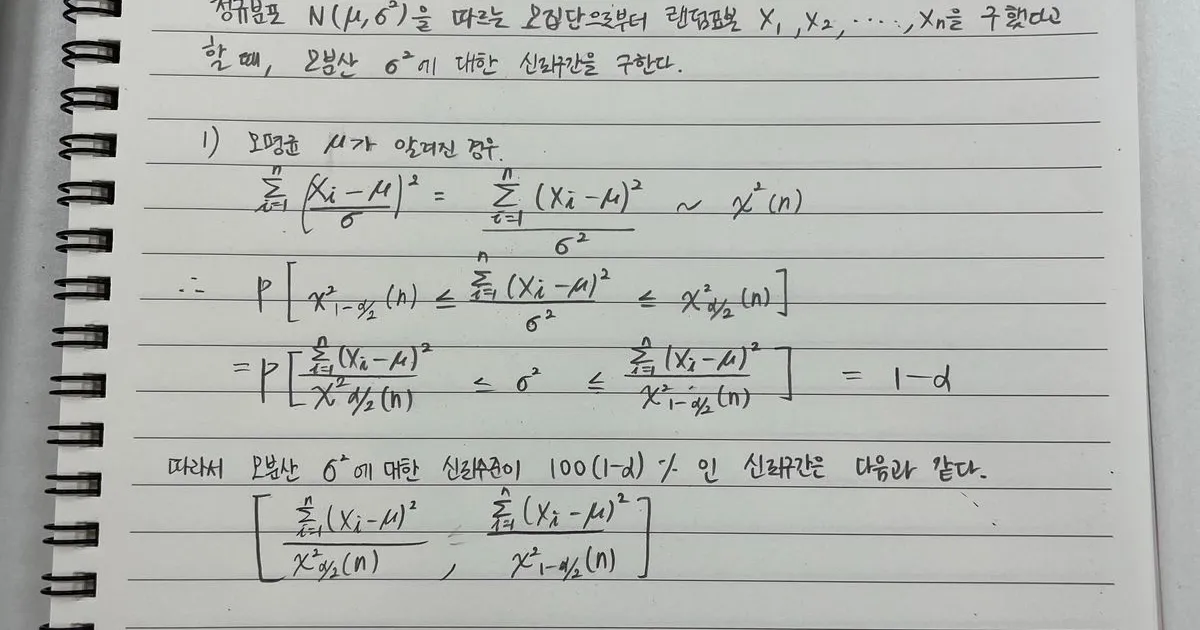 정규분포 N(μ, σ²)을 따르는 모집단으로부터 랜덤표본 X₁, X₂, ····, Xₙ을 구했다고
할 때, 모분산 σ²에 대한 신뢰구간을 구한다.
1) 모평균 μ가 알려진 경우.
∑ᵢ₌₁ⁿ ((Xᵢ-μ)/σ)² = ∑ᵢ₌₁ⁿ (Xᵢ-μ)² / σ² ~ χ²(n)
∴ P[ χ²_{1-α/2}(n) ≤ ∑ᵢ₌₁ⁿ (Xᵢ-μ)² / σ² ≤ χ²_{α/2}(n) ]
= P[ ∑ᵢ₌₁ⁿ (Xᵢ-μ)² / χ²_{α/2}(n) ≤ σ² ≤ ∑ᵢ₌₁ⁿ (Xᵢ-μ)² / χ²_{1-α/2}(n) ] = 1-α
따라서 모분산 σ²에 대한 신뢰수준이 100(1-α)% 인 신뢰구간은 다음과 같다.
[ ∑ᵢ₌₁ⁿ (Xᵢ-μ)² / χ²_{α/2}(n) , ∑ᵢ₌₁ⁿ (Xᵢ-μ)² / χ²_{1-α/2}(n) ]